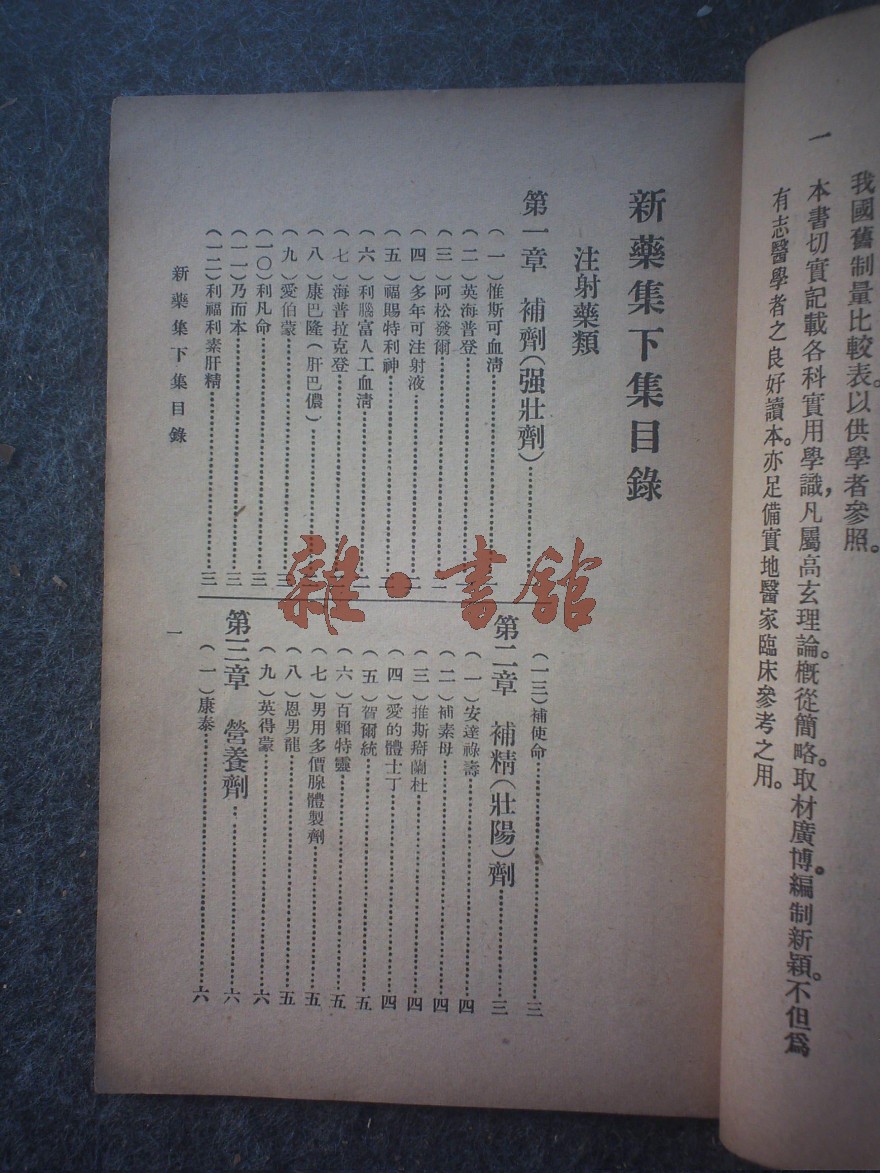 我國舊制量比較表。以供學者參照。
一
本書切實記載各科實用學識，凡屬高玄理論。概從簡略。取材廣博。編制新穎。不但爲
有志醫學者之良好讀本。亦足備實地醫家臨床參考之用。
新藥集下集目錄
注射藥類
第一章 補劑(强壯劑)
(一)惟斯可血淸
(二)英海普登
(三)阿松發爾
(四)多年可注射液
(五)福賜特利神
(六)利腦富人工血淸
(七)海普拉克登
(八)康巴隆(肝巴儂)
(九)愛伯蒙
(一〇)利凡命 三
(一一)乃而本 三
(一二)利福利素肝精 三
(一三)補使命 三
第二章 補精(壯陽)劑 三
(一)安達祿壽 四
(二)補素母 四
(三)推斯搿蘭杜 四
(四)愛的體士丁 四
(五)智爾統 五
(六)百賴特靈 五
(七)男用多價腺體製劑 五
(八)恩男龍 五
(九)英得蒙 六
第三章 營養劑 六
(一)康泰 六
新藥集下集目錄
一
雜·書館